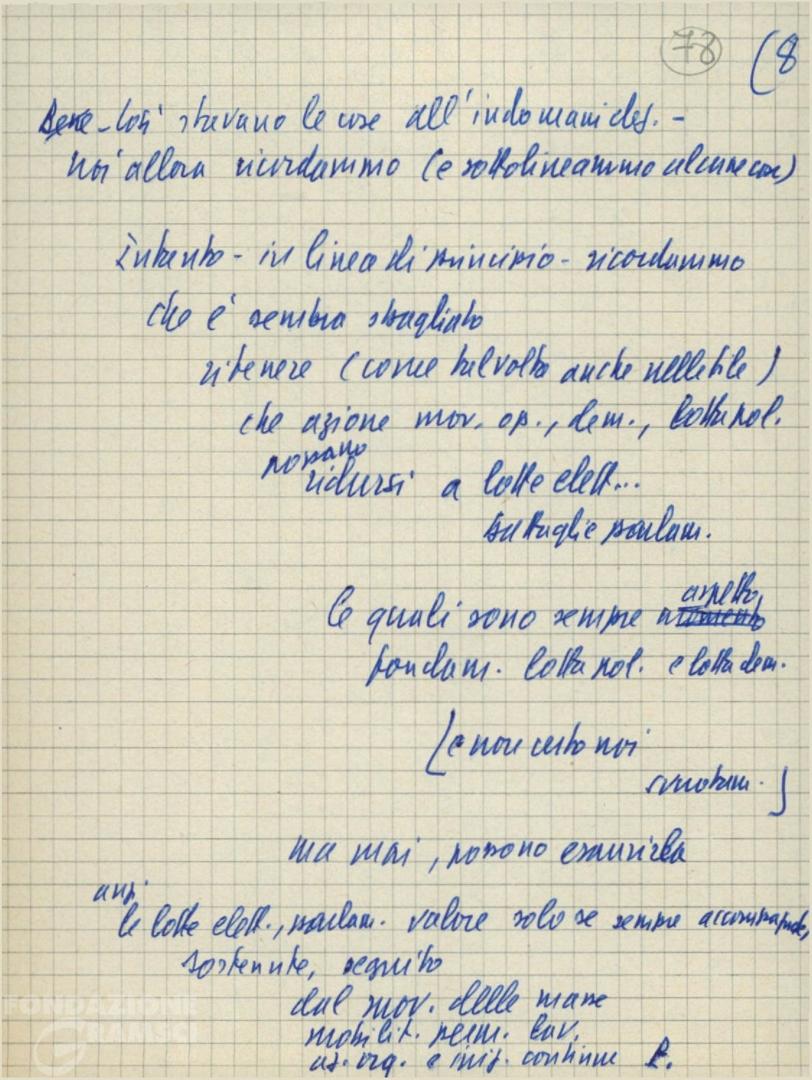 78 (8
Bene - Così stavano le cose all'indomani des. -
Noi allora ricordammo (e sottolineammo alcune cose)
Intanto - in linea di principio - ricordammo
che è sempre sbagliato
ritenere (come talvolta anche nelle file)
che azione mov. op., dem., lotta pol.
possano
ridursi a lotte elett...
battaglie parlam.
le quali sono sempre momento aspetto
fondam. lotta pol. e lotta dem.
[e non certo noi
svalutam.]
ma mai, possono esaurirla
anzi
le lotte elett., parlam. valore solo se sempre accompagnate,
sostenute, seguito
dal mov. delle masse
mobilit. perm. lav.
az. org. e iniz. continue P.
FONDAZIONE
GRAMSCI